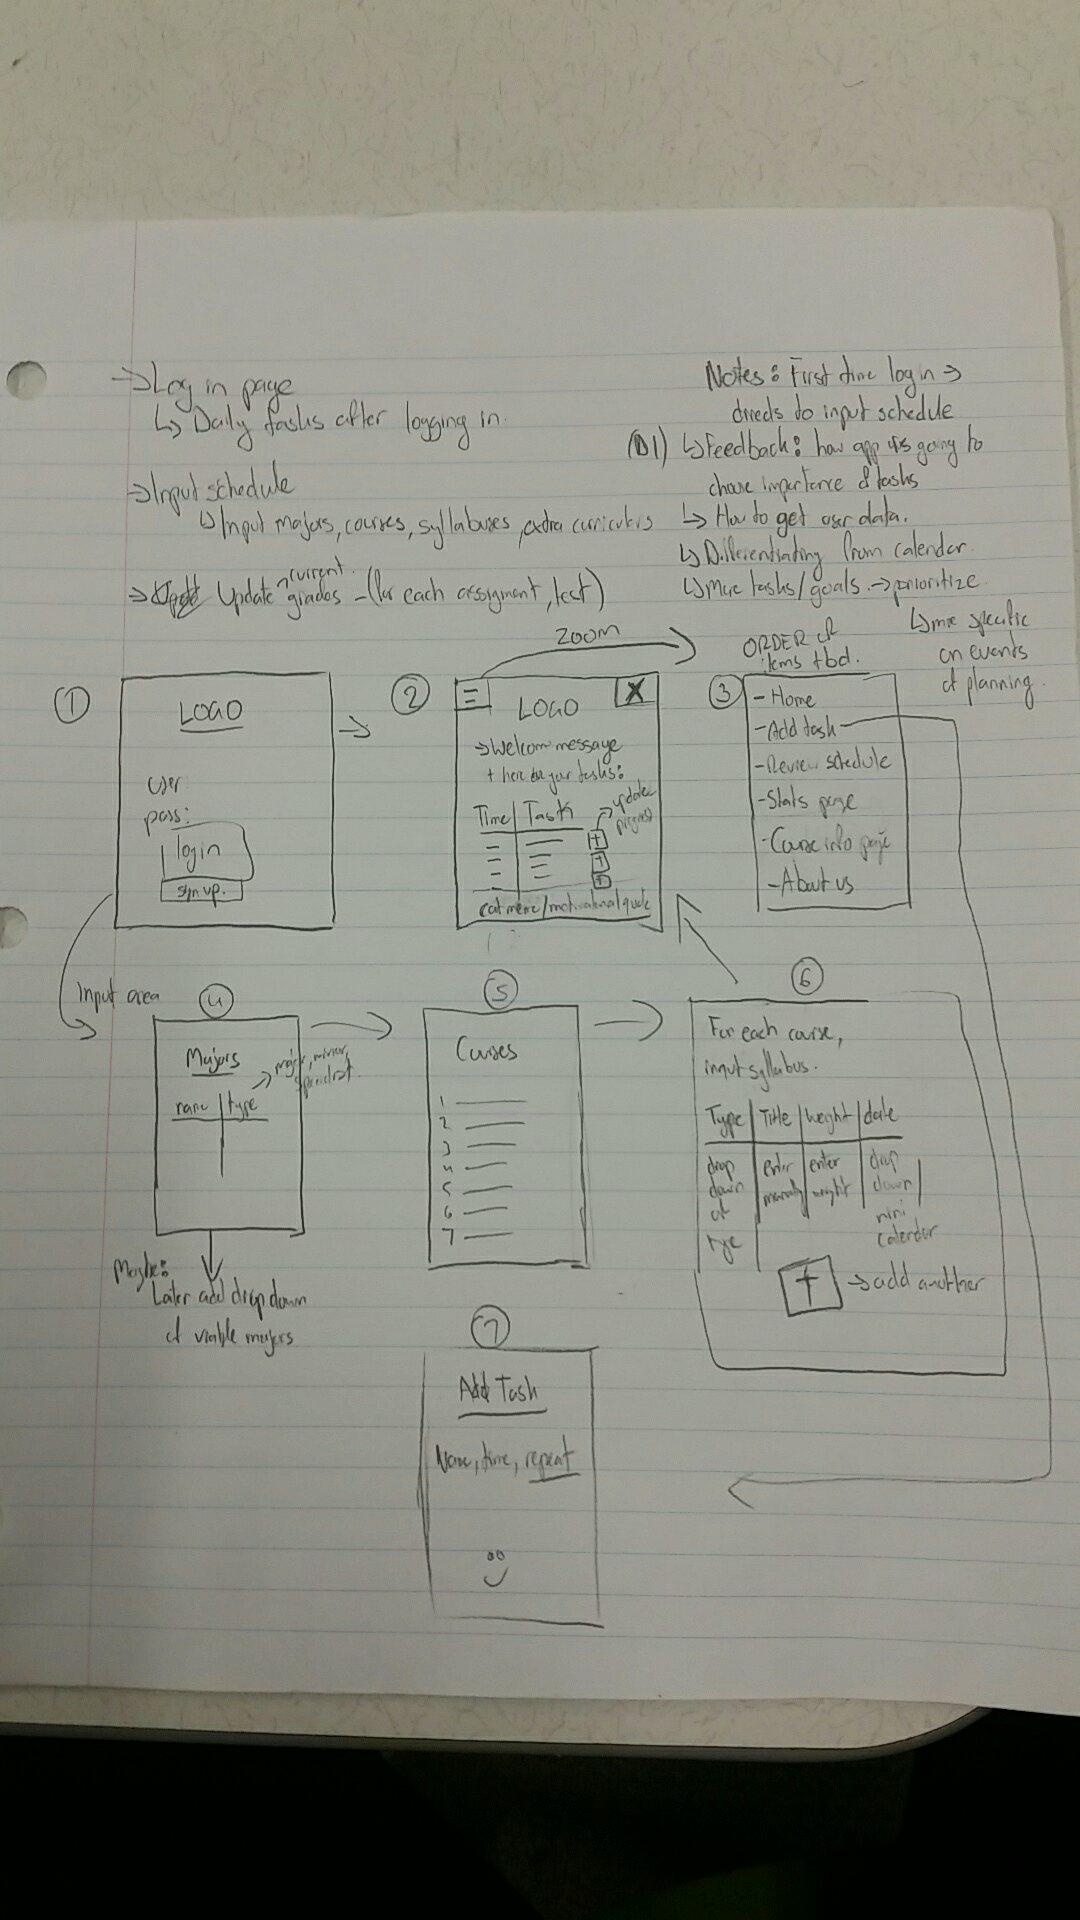 → Log in page
↳ Daily tasks after logging in.
→ Input schedule
↳ Input majors, courses, syllabuses, extra curriculars
→ Update current grades - (for each assignment, test)
Notes: First time login →
directs to input schedule
(D1) ↳ Feedback: how app is going to
choose importance of tasks
↳ How to get user data.
↳ Differentiating from calendar.
↳ More tasks/goals. → prioritize
↳ more specific
on events
of planning.
ZOOM
ORDER of
items tbd.
1
LOGO
user
pass:
login
sign up.
2
LOGO
X
→ Welcome message
+ here are your tasks:
Time | Task
→ update
progress
+
+
+
cat meme/motivational quote
3
- Home
- Add task
- Review schedule
- Stats page
- Course info page
- About us
Input area
4
Majors
name | type
→ major, minor,
specialist.
Maybe:
Later add drop down
of viable majors
5
Courses
1
2
3
4
5
6
7
6
For each course,
input syllabus.
Type | Title | weight | date
drop down of type | enter manually | enter weight | drop down mini calendar
+ → add another
7
Add Task
Name, time, repeat